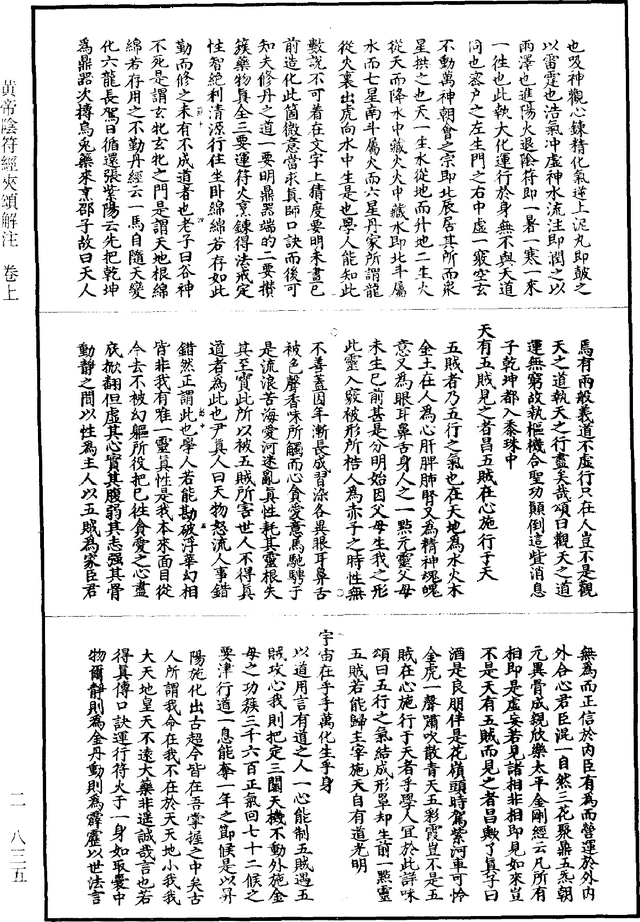 黃帝陰符經夾頌解注 卷上
也吸神觀心鍊精化氣逆上泥丸即鼓之
以雷霆也浩氣冲虛神水流注即潤之以
雨澤也進陽火退陰符即一暑一寒一來
一往也此執大化運行於身無不與天道
同也密户之左生門之右中虛一竅空玄
不動萬神朝會之宗即北辰居其所而衆
星拱之也天一生水從地而升地二生火
從天而降水中藏火火中藏水即北斗屬
水而七星南斗屬火而六星丹家所謂龍
從火裏出虎向水中生是也學人能知此
數說不可着在文字上猜度要明未畫已
前造化此箇微意當求真師口訣而後可
知夫修丹之道一要明鼎器端的二要攅
簇藥物真全三要運符火烹鍊得法戒定
性智絶利清源行住坐卧綿綿若存如此
勤而修之未有不成道者也老子曰谷神
不死是謂玄牝玄牝之門是謂天地根綿
綿若存用之不勤丹經云一馬自隨天變
化六龍長駕日循還張紫陽云先把乾坤
爲鼎器次摶烏兎藥來烹邵子故曰天人
焉有兩般義道不虛行只在人豈不是觀
天之道執天之行盡矣哉頌曰觀天之道
運無窮故執樞機合聖功顛倒這些消息
子乾坤都入黍珠中
天有五賊見之者昌五賊在心施行于天
五賊者乃五行之氣也在天地爲水火木
金土在人爲心肝脾肺腎又爲精神魂魄
意又爲眼耳鼻舌身人之一點元靈父母
未生已前甚是分明始因父母生我之形
此靈入竅被形所梏人爲赤子之時性無
不善蓋因年漸長成習染各異眼耳鼻舌
被色聲香味所觸而心貪愛意馬馳騁于
是流浪苦海愛河迷亂真性耗其靈根失
其至寳此所以被五賊所害世人不得真
道者爲此也尹真人曰天物怒流人事錯
錯然正謂此也學人若能勘破浮華幻相
皆非我有唯一靈真性是我本來面目從
今去不被幻軀所役把已往貪愛之心盡
底掀翻但虛其心實其腹弱其志强其骨
動靜之間以性爲主人以五賊爲家臣君
無爲而正信於内臣有爲而營運於外内
外合心君臣混一自然三花聚鼎五炁朝
元異骨成親欣樂太平金剛經云凡所有
相即是虛妄若見諸相非相即見如來豈
不是天有五賊而見之者昌歟了真子曰
酒是良朋伴是花嶺頭時駕紫河車可怜
金虎一聲嘯吹散青天五彩霞豈不是五
賊在心施行于天者乎學人宜於此詳味
頌曰五行之氣結成形單却生前一點靈
五賊若能歸主宰施天自有道光明
宇宙在乎手萬化生乎身
以道用言有道之人一心能制五賊遇五
賊攻心我則把定三關天機不動外施金
母之功簇三千六百正氣回七十二候之
要津行道一息能奪一年之節候是以升
陽施化出古超今皆在吾掌握之中矣古
人所謂我命在我不在於天天地小我我
大天地皇天不遠大藥非遥誠哉言也若
得真傳口訣運行符火于一身如取囊中
物爾靜則爲金丹動則爲霹靂以世法言
二一八二五